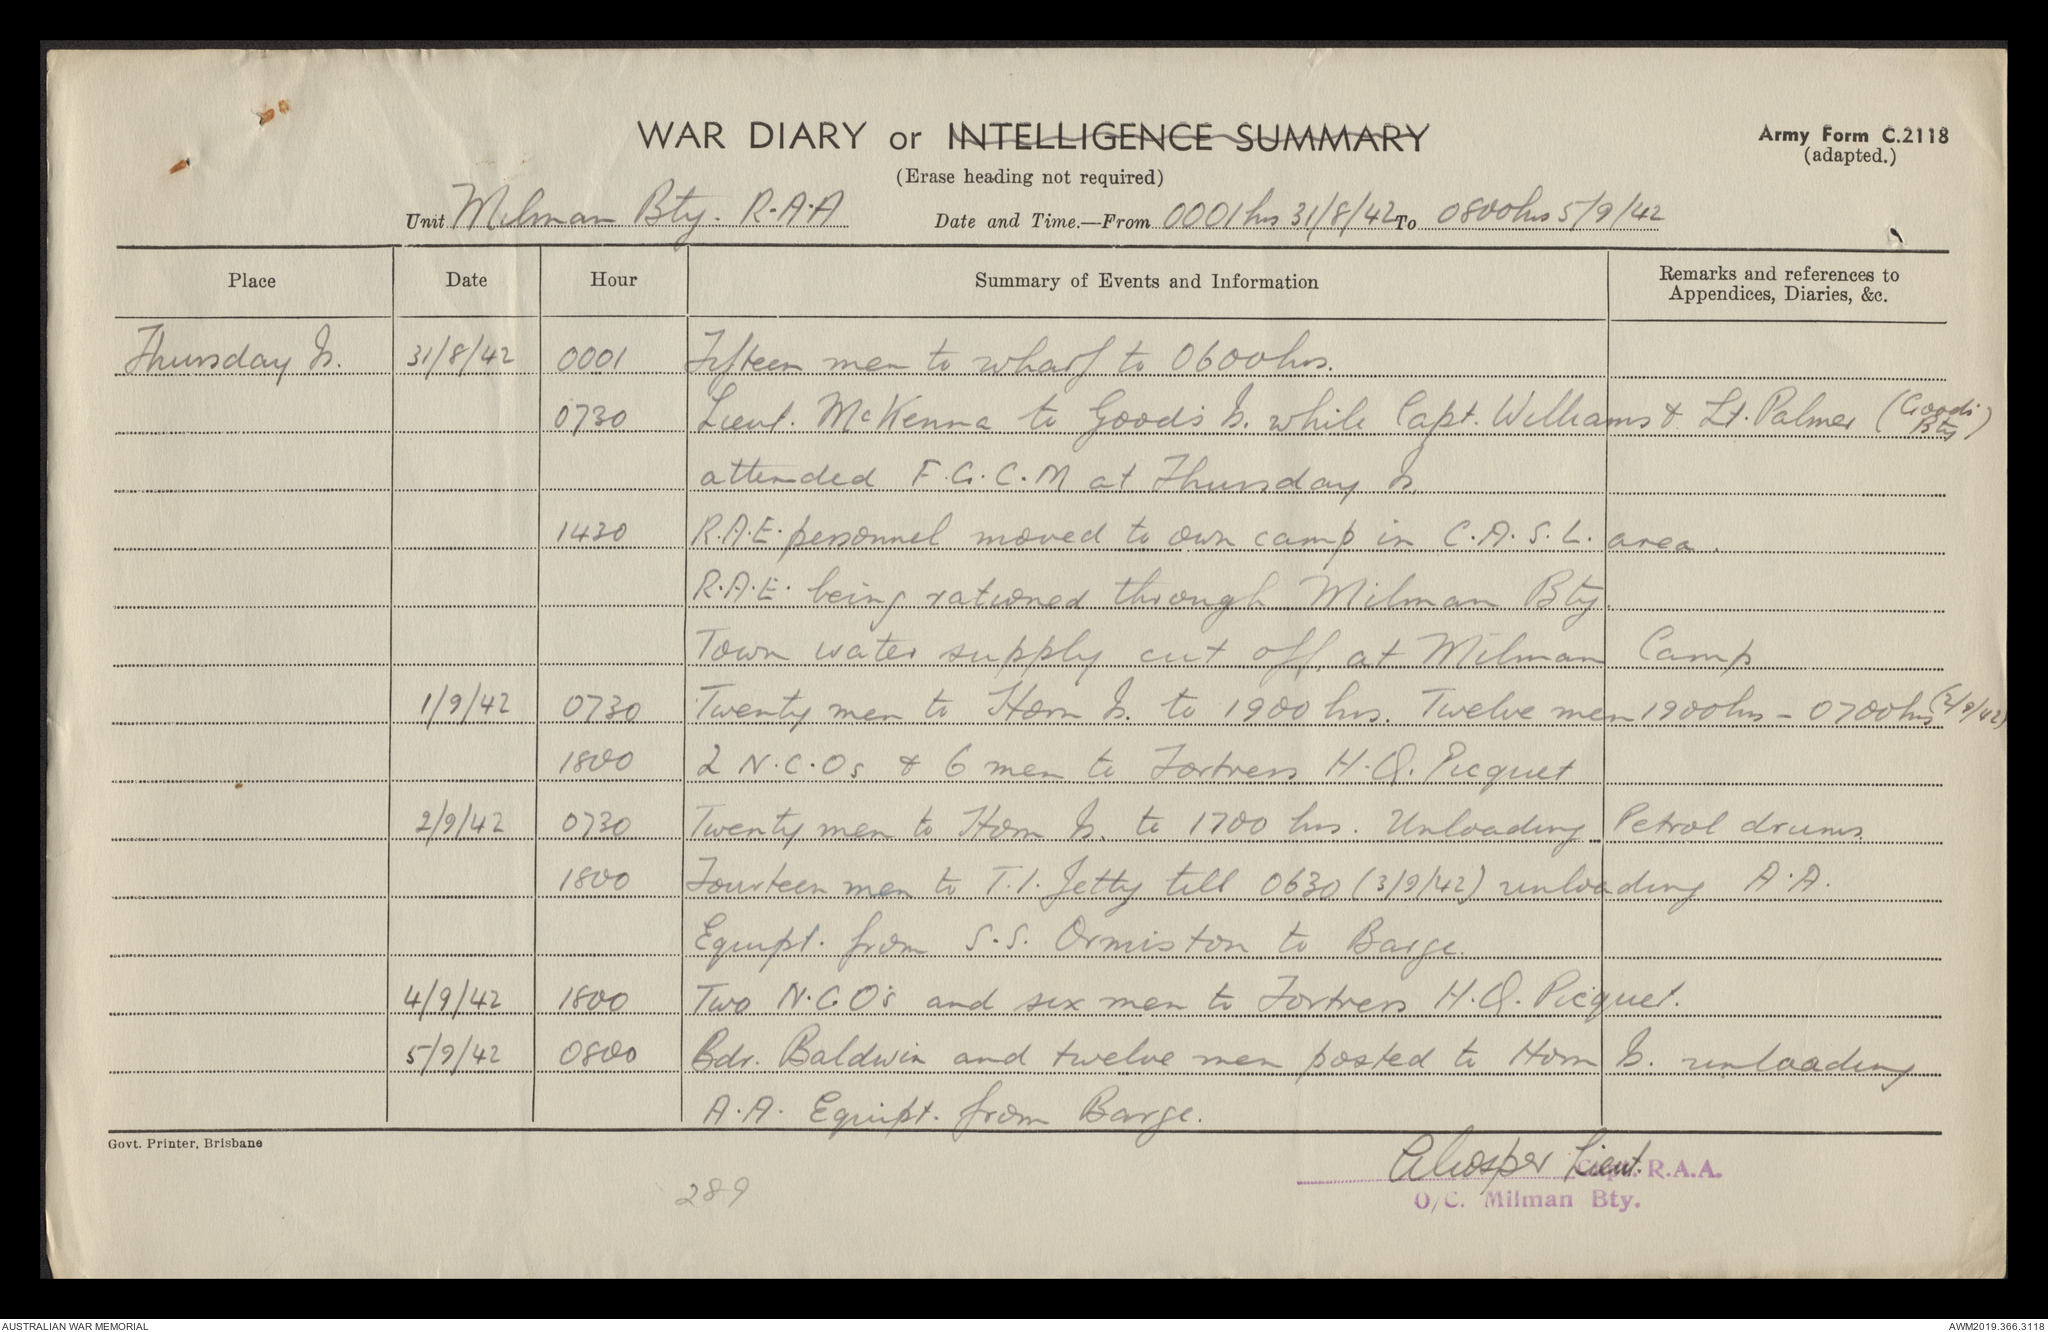 WAR DIARY or INTELLIGENCE SUMMARY
(Erase heading not required)
Army Form C.2118
(adapted.)
Unit Milman Bty. R.A.A Date and Time.—From 0001hrs 31/8/42 To 0800hrs 5/9/42
Place Date Hour Summary of Events and Information Remarks and references to Appendices, Diaries, &c.
Thursday Is. 31/8/42 0001 Fifteen men to wharf to 0600hrs.
0730 Lieut. McKenna to Goods Is. while Capt. Williams & Lt. Palmer (Goods Bty)
attended F.G.C.M at Thursday Is.
1430 R.A.E. personnel moved to own camp in C.A.S.L. area.
R.A.E. being rationed through Milman Bty.
Town water supply cut off at Milman Camp
1/9/42 0730 Twenty men to Horn Is. to 1900 hrs. Twelve men 1900hrs - 0700hrs (2/9/42)
1800 2 N.C.Os & 6 men to Fortress H.Q. Picquet
2/9/42 0730 Twenty men to Horn Is. to 1700 hrs. Unloading Petrol drums.
1800 Fourteen men to T.I. Jetty till 0630 (3/9/42) unloading A.A.
Equipt. from S.S. Ormiston to Barge.
4/9/42 1800 Two N.C.O's and six men to Fortress H.Q. Picquet.
5/9/42 0800 Bdr. Baldwin and twelve men posted to Horn Is. unloading
A.A. Equipt. from Barge.
Govt. Printer, Brisbane
Lieut. R.A.A.
O/C. Milman Bty.
289
AUSTRALIAN WAR MEMORIAL
AWM2019.366.3118